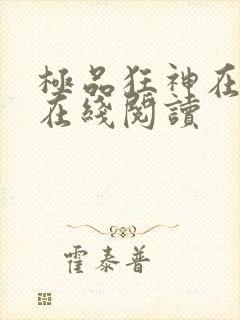 極品狂神在
在綫閱讀
霍泰普